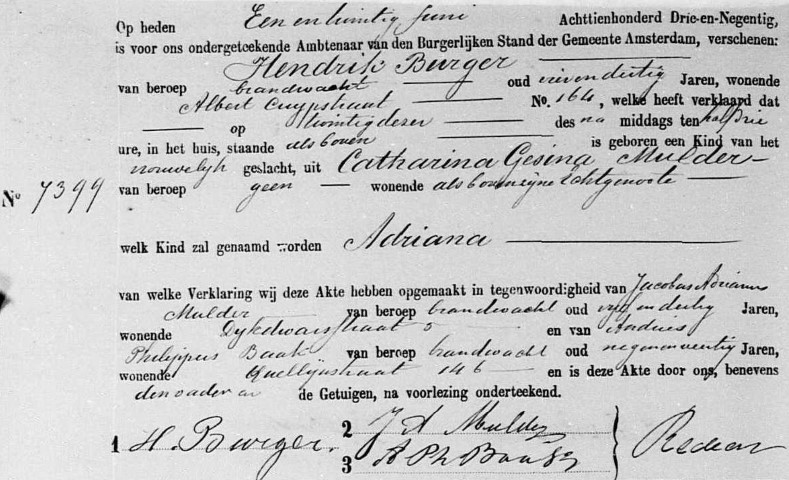 Op heden Een en twintig Juni Achttienhonderd Drie-en-Negentig,
is voor ons ondergeteekende Ambtenaar van den Burgerlijken Stand der Gemeente Amsterdam, verschenen:
Hendrik Burger
van beroep brandwacht oud vierendertig Jaren, wonende
Albert Cuypstraat No. 164, welke heeft verklaard dat
op twintig dezer des na middags ten half drie
ure, in het huis, staande als boven is geboren een Kind van het
vrouwelijk geslacht, uit Catharina Gesina Mulder
van beroep geen wonende als boven zijne Echtgenoote
No 7399
welk Kind zal genaamd worden Adriana
van welke Verklaring wij deze Akte hebben opgemaakt in tegenwoordigheid van Jacobus Adrianus
Mulder van beroep brandwacht oud vijf en dertig Jaren,
wonende Dykdwarsstraat 5 en van Andries
Philippus Baak van beroep brandwacht oud negenenveertig Jaren,
wonende Quellijnstraat 146 en is deze Akte door ons, benevens
den vader en de Getuigen, na voorlezing onderteekend.
1 H. Burger. 2 J A Mulder
3 A Ph Baak